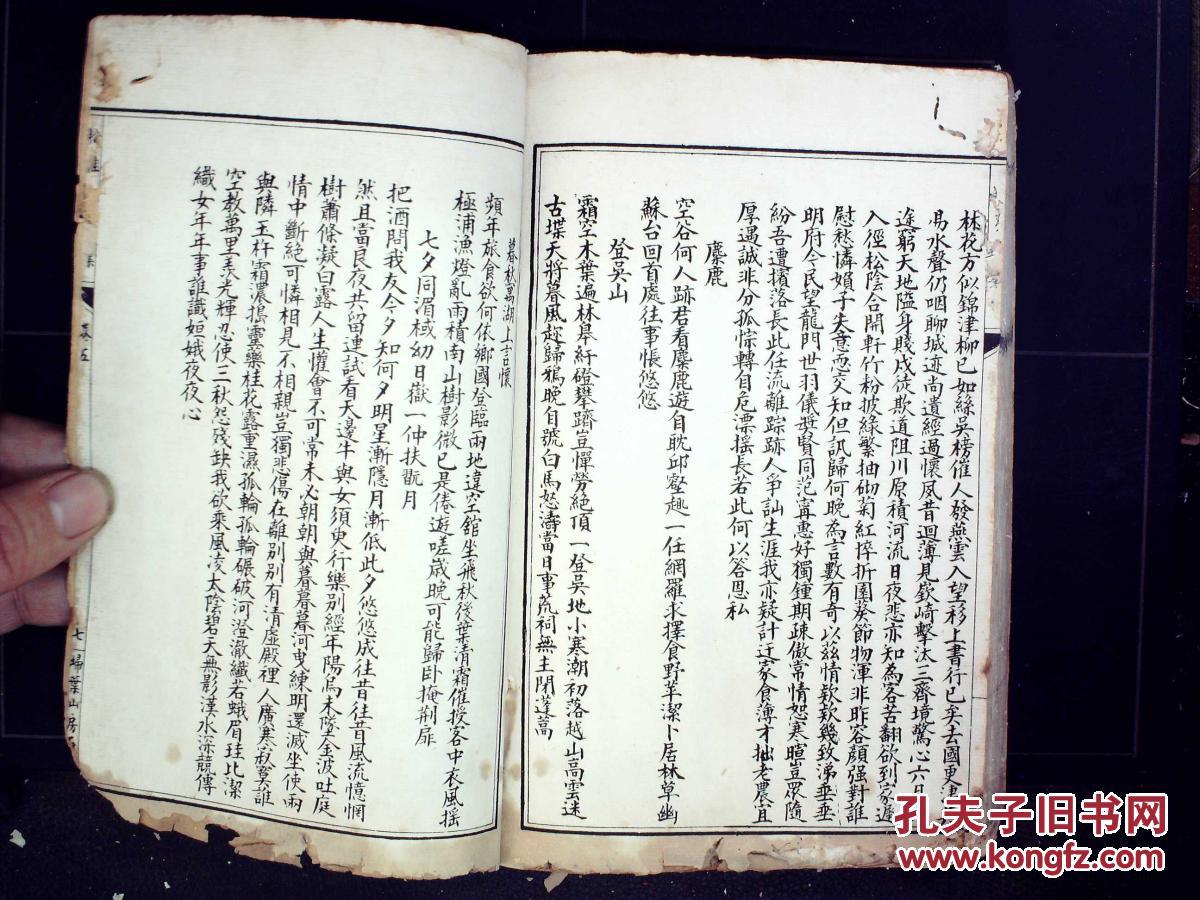 林花方似錦津柳已如絲吳榜催人發燕雲入望移上書行已矣去國更津
易水聲仍咽聊城迹尚遺經過懷夙昔迴薄見嶔崎擊汰三齊境驚心六月
途窮天地隘身賤戍徒欺道阻川原積河流日夜悲亦知為客苦翻欲到家遲
入徑松陰合開軒竹粉披綠繁抽砌菊紅捽折園葵節物渾非昨容顏强對誰
慰愁憐嬾子失意恧交知但訊歸何晚為言數有奇以茲情欵欵幾致涕垂垂
明府今民望龍門世羽儀奬賢同范甯惠好獨鍾期疎傲常情恕寒暄豈眾隨
紛吾遭擯落長此任流離踪跡人爭訕生涯我亦疑計迂家食薄才拙老農宜
厚遇誠非分孤悰轉自危漂搖長若此何以答恩私
麋鹿
空谷何人跡君看麋鹿遊自耽邱壑趣一任網羅求擇食野苹潔卜居林草幽
蘇台回首處往事悵悠悠
登吳山
霜空木葉遍林皋紆磴攀躋豈憚勞絕頂一登吳地小寒潮初落越山高雲迷
古堞天將暮風趁歸鴉晚自號白馬怒濤當日事荒祠無主閉蓬蒿
暮秋萬湖上言懷
頻年旅食欲何依鄉國登臨兩地違空舘坐飛秋後葉清霜催授客中衣風搖
極浦漁燈亂雨積南山樹影微已是倦遊嗟歲晚可能歸卧掩荆扉
七夕同湄棫幼日嶽一仲扶翫月
把酒問我友今夕知何夕明星漸隱月漸低此夕悠悠成往昔往昔風流憶惘
然且當良夜共留連試看天邊牛與女須臾行樂別經年陽烏未墜金波吐庭
樹蕭條凝白露人生懽會不可常未必朝朝與暮暮暮河曳練明還滅坐使兩
情中斷絕可憐相見不相親豈獨悲傷在離別別有清虛殿裡人廣寒寂寞誰
與隣玉杵霜濃搗靈藥桂花露重濕孤輪孤輪碾破河澄澈纖若蛾眉珪比潔
空教萬里羨光輝忍使三秋怨殘缺我欲乘風凌太陰碧天無影漢水深競傳
織女年年事誰識姮娥夜夜心
卷五
七
掃葉山房石
孔夫子旧书网
www.kongfz.com